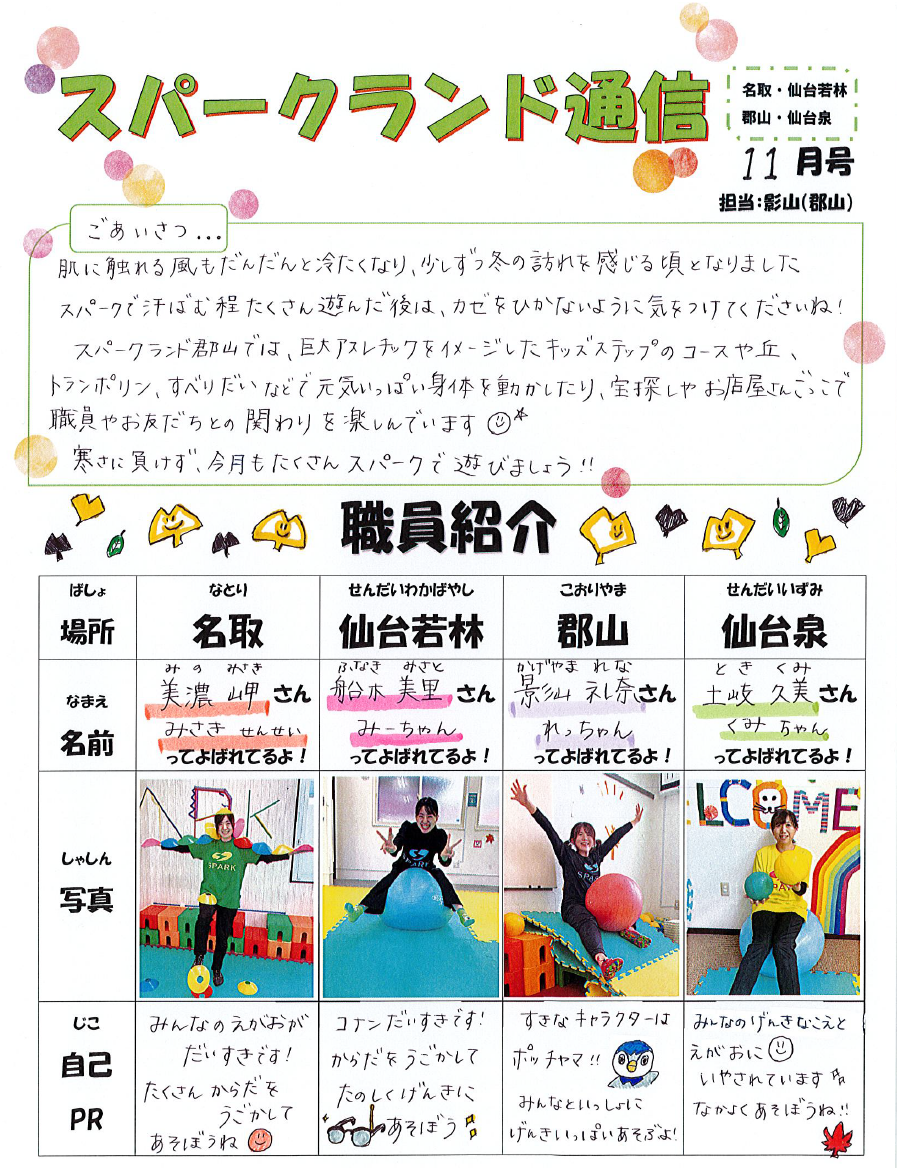 スパークランド通信
名取・仙台若林
郡山・仙台泉
11月号
担当:影山(郡山)
ごあいさつ...
肌に触れる風もだんだんと冷たくなり、少しずつ冬の訪れを感じる頃となりました
スパークで汗ばむ程たくさん遊んだ後は、カゼをひかないように気をつけてくださいね!
スパークランド郡山では、巨大アスレチックをイメージしたキッズステップのコースや丘、
トランポリン、すべりだいなどで元気いっぱい身体を動かしたり、宝探しやお店屋さんごっこで
職員やお友だちとの関わりを楽しんでいます
寒さに負けず、今月もたくさんスパークで遊びましょう!!
職員紹介
ばしょ なとり せんだいわかばやし こおりやま せんだいいずみ
場所 名取 仙台若林 郡山 仙台泉
みの みさき ふなき みさと かげやま れな とき くみ
美濃 岬さん 船木 美里さん 影山 礼奈さん 土岐 久美さん
なまえ
名前
みさき せんせい みーちゃん れっちゃん くみちゃん
ってよばれてるよ! ってよばれてるよ! ってよばれてるよ! ってよばれてるよ!
しゃしん
写真
SPARK
SPARK
WELCOME
じこ
自己
PR
みんなのえがおが
だいすきです!
たくさん からだを
うごかして
あそぼうね
コナンだいすきです!
からだをうごかして
たのしくげんきに
あそぼう
すきなキャラクターは
ポッチャマ!!
みんなといっしょに
げんきいっぱいあそぶよ!
みんなのげんきなこえと
えがおに
いやされています
なかよくあそぼうね!!